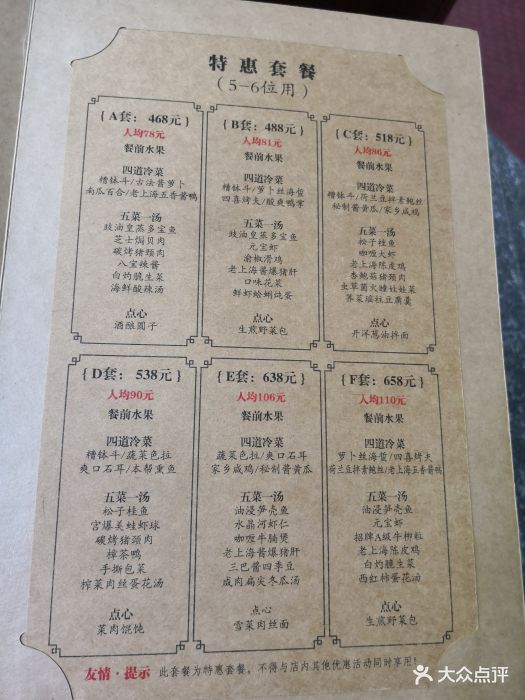 特惠套餐
（5-6位用）
{ A套：468元 }
人均78元
餐前水果
四道冷菜
糟钵斗/古法酱萝卜
南瓜百合/老上海五香酱鸭
五菜一汤
豉油皇蒸多宝鱼
芝士焗贝肉
碳烤猪颈肉
八宝辣酱
白灼脆生菜
海鲜酸辣汤
点心
酒酿圆子
{ B套：488元 }
人均81元
餐前水果
四道冷菜
糟钵斗/萝卜丝海蜇
四喜烤夫/酸爽鸭掌
五菜一汤
豉油皇蒸多宝鱼
元宝虾
渝椒滑鸡
老上海酱爆猪肝
口味花菜
鲜虾蛤蜊炖蛋
点心
生煎野菜包
{ C套：518元 }
人均86元
餐前水果
四道冷菜
糟钵斗/荷兰豆拌素鲍丝
秘制酱黄瓜/家乡咸鸡
五菜一汤
松子桂鱼
咖喱大虾
老上海陈皮鸡
杏鲍菇猪颈肉
虫草菌火瞳娃娃菜
荠菜瑶柱豆腐羹
点心
开洋葱油拌面
{ D套：538元 }
人均90元
餐前水果
四道冷菜
糟钵斗/蔬菜色拉
爽口石耳/本帮熏鱼
五菜一汤
松子桂鱼
宫爆美蛙虾球
碳烤猪颈肉
樟茶鸭
手撕包菜
榨菜肉丝蛋花汤
点心
菜肉馄饨
{ E套：638元 }
人均106元
餐前水果
四道冷菜
蔬菜色拉/爽口石耳
家乡咸鸡/秘制酱黄瓜
五菜一汤
油浸笋壳鱼
水晶河虾仁
咖喱牛腩煲
老上海酱爆猪肝
三巴酱四季豆
咸肉扁尖冬瓜汤
点心
雪菜肉丝面
{ F套：658元 }
人均110元
餐前水果
四道冷菜
萝卜丝海蜇/四喜烤夫
荷兰豆拌素鲍丝/老上海五香酱鸭
五菜一汤
油浸笋壳鱼
元宝虾
招牌A级牛柳粒
老上海陈皮鸡
白灼脆生菜
西红柿蛋花汤
点心
生煎野菜包
友情·提示 此套餐为特惠套餐，不得与店内其他优惠活动同时享用！
大众点评